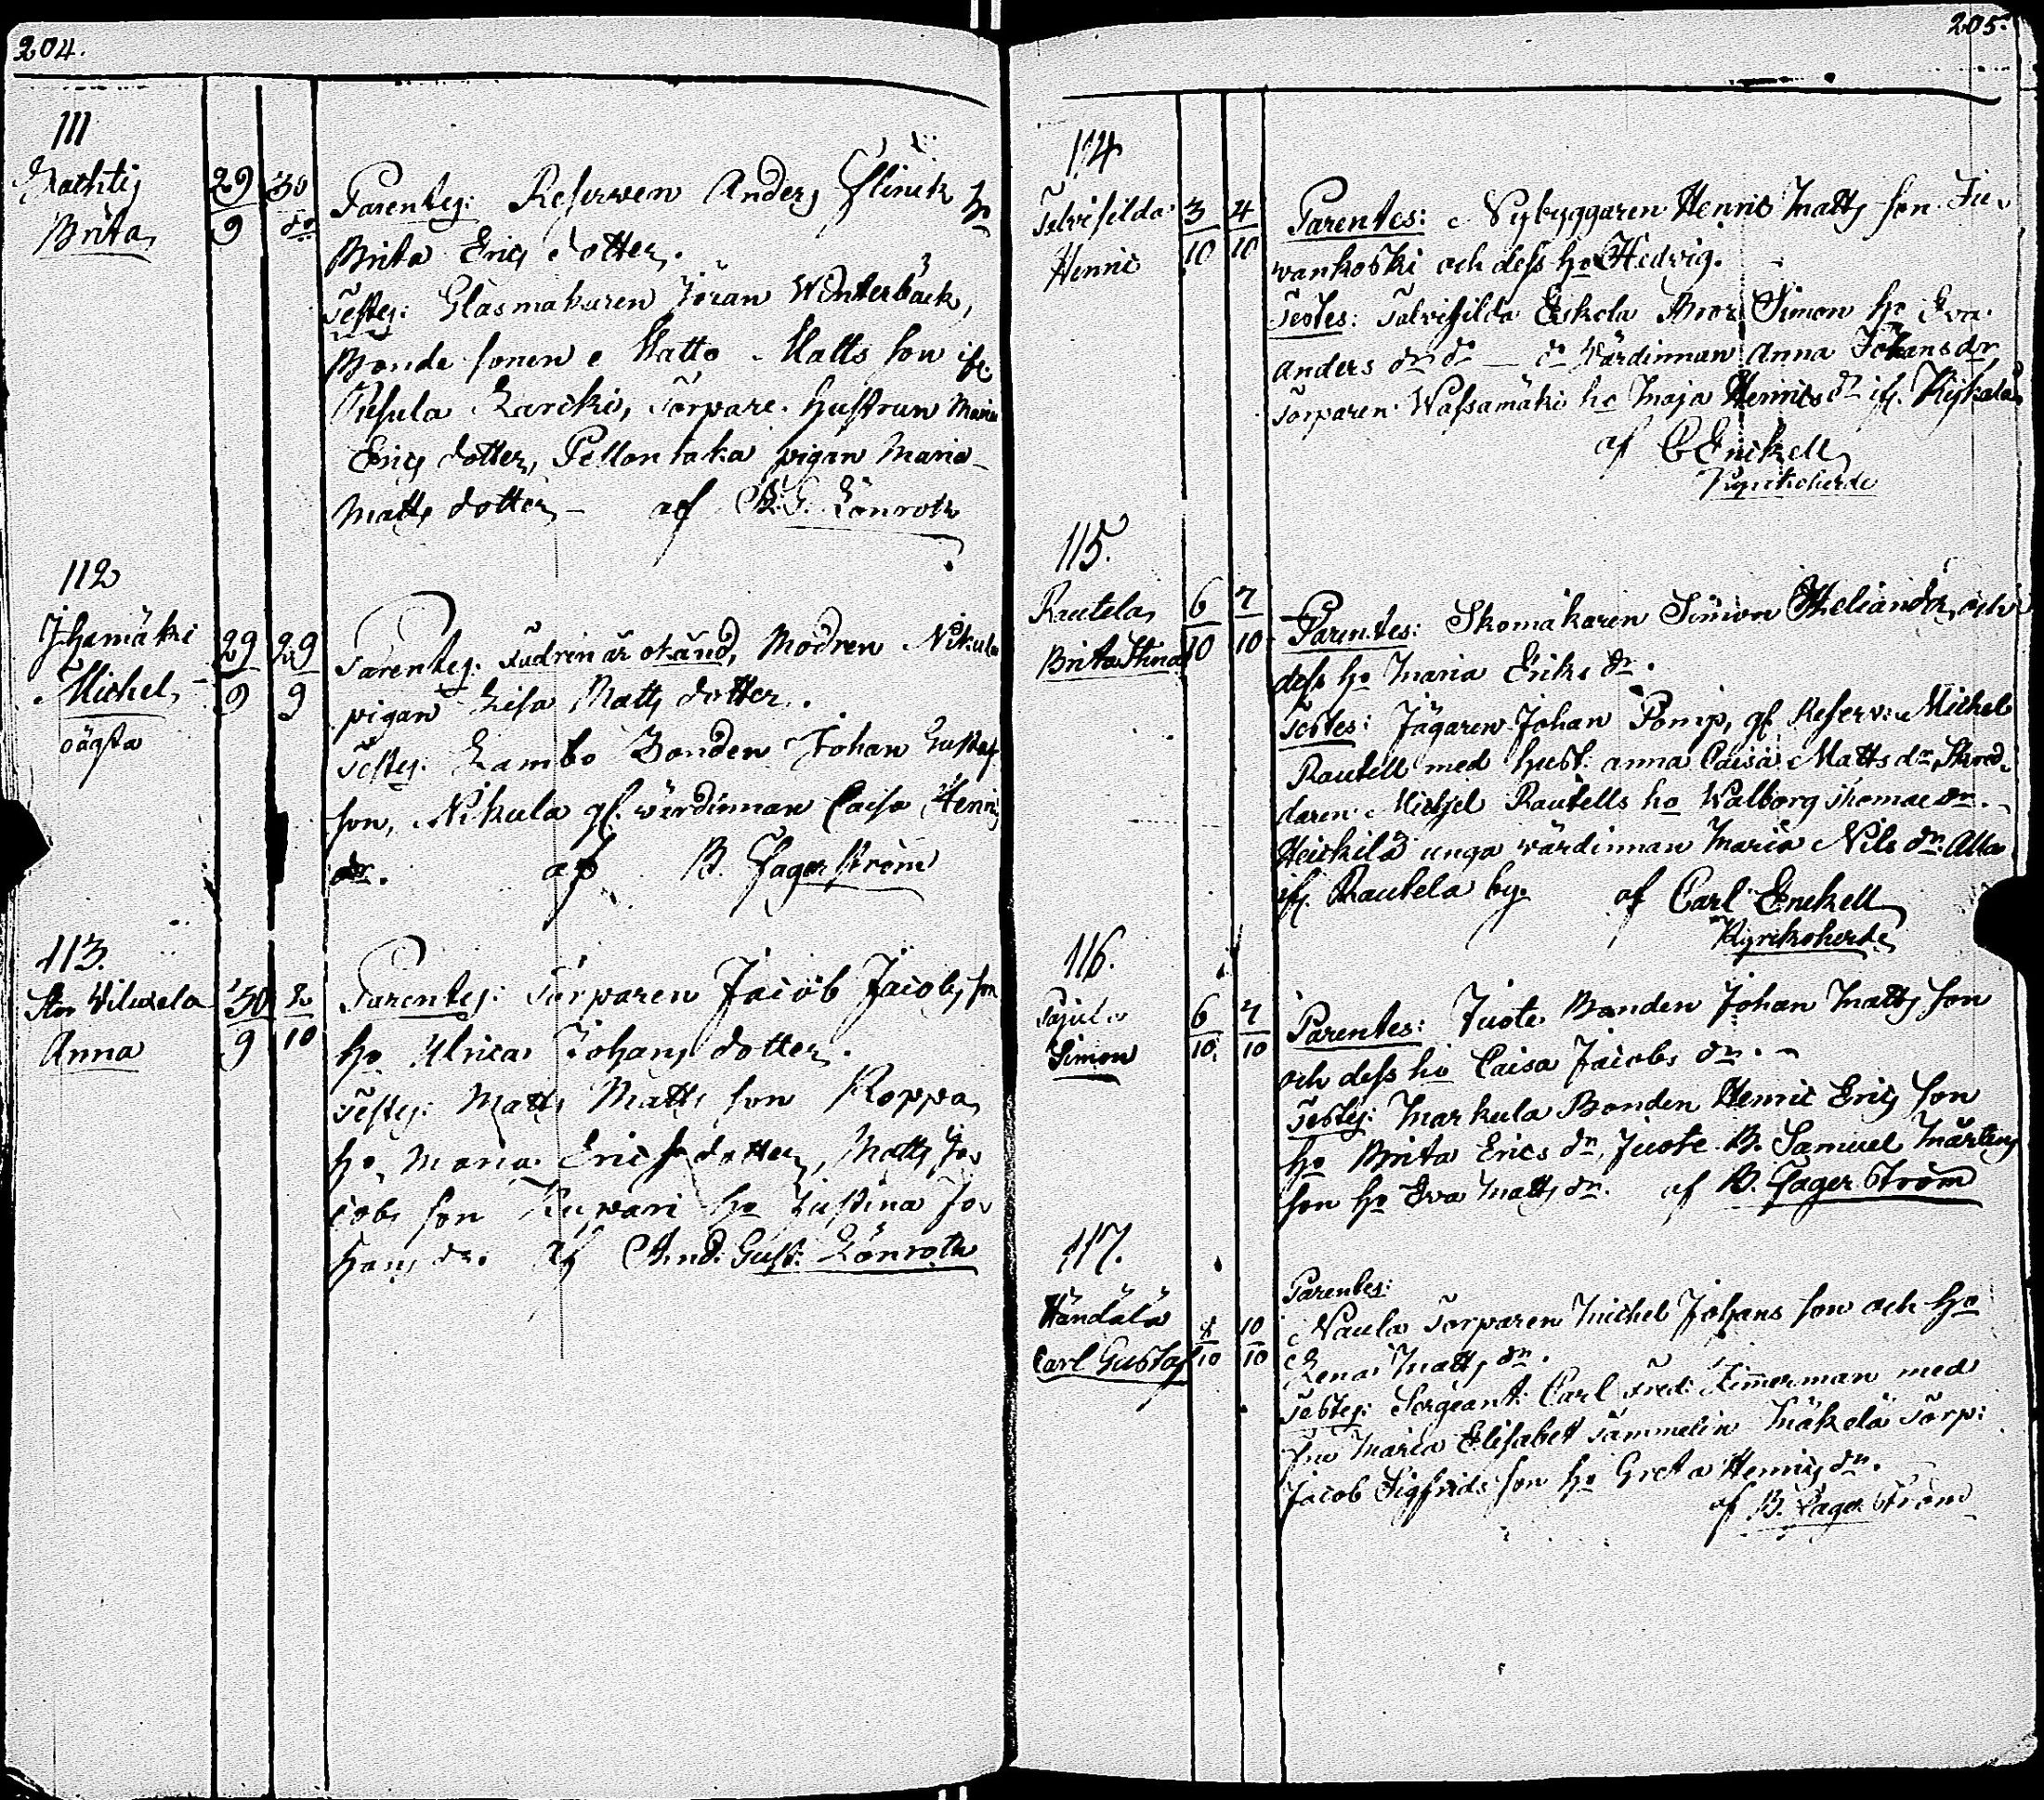 204.
111
Brita
29/9 30/do
Parentes: Reserven Anders Flinck ho
Brita Erics dotter.
Testes: Glasmakaren Jöran Winterbäck,
Bonde sonen Matts Matts son ifr.
Lareki, Torpare hustrun Maria
Erics dotter, Pellontaka pigan Maria
Matts dotter, af A.G. Lönroth
112
Ihamäki
Michel
oägta
29/9 29/9
Parentes: Fadren är okänd, Modren Nikula
pigan Lisa Matts dotter.
Testes: Lambo Bonden Johan Gustaf
son, Nikula gl. wärdinnan Caisa Henrics
dr. af B. Fagerström
113.
Anna
30/9 2/10
Parentes: Torparen Jacob Jacobs son
ho Ulrica Johans dotter.
Testes: Matts Matts son Roppa
ho Maria Erics dotter, Matts Ja
cobs son Kupari ho Justina Jo
hans dr. af And. Gust. Lönroth
205.
114
Henric
3/10 4/10
Parentes: Nybyggaren Henric Matts son Ju
wankoski och dess ho Hedvig.
Testes: Eskola Bror Simon ho Eva
Anders dr do — do wärdinnan Anna Johans dr,
Torparen Wassamäki ho Maja Henrics dr
af C Enckell
Kyrkoherde
115.
Rautela
Brita Stina
6/10 7/10
Parentes: Skomakaren Simon Heliander och
dess ho Maria Eriks dr.
Testes: Jägaren Johan Pomp, gl. Reserv: Michel
Rautell med hust: Anna Caisa Matts dr, Skred
daren Michel Rautells ho Walborg Thomae dr.
Heickilä unga wärdinnan Maria Nils dr. Alla
ifr. Rautela by. af Carl Enckell
Kyrkoherde
116.
Simon
6/10 7/10
Parentes: Juote Bonden Johan Matts son
och dess ho Caisa Jacobs dr.
Testes: Markula Bonden Henric Erics son
ho Brita Erics dr, Juote B. Samuel Mårtens
son ho Eva Matts dr. af B. Fagerström
117.
Händälä
Carl Gustaf
10/10
Parentes:
Naula Torparen Michel Johans son och ho
Lena Matts dr.
Testes: Sergeant: Carl Fred: Zimmerman med
fru Maria Elisabet Tammelin Mäkelä Torp:
Jacob Sigfrids son ho Greta Henrics dr.
af B. Fagerström